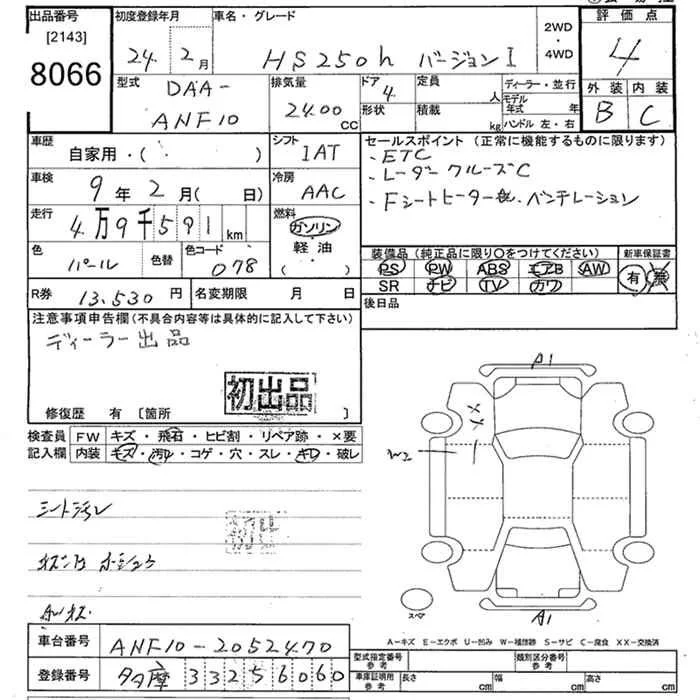 出品番号
[2143]
8066
初度登録年月
24年 2月
車名・グレード
HS250h バージョンI
2WD
・
4WD
評価点
4
外装 内装
B C
型式
DAA-
ANF10
排気量
24.00 CC
ドア
4
形状
定員
人
積載
kg
ディーラー・並行
モデル年式 年
ハンドル 左・右
車歴
自家用・( )
シフト
IAT
車検
9年 2月( 日)
冷房
AAC
走行
4万9千591km
燃料
ガソリン
軽・油
( )
色
パール
色替
色コード
078
R券 13.530円
名変期限 月 日
セールスポイント(正常に機能するものに限ります)
・ETC
・レーダークルーズC
・Fシートヒーター・ベンチレーション
装備品(純正品に限り○をつけてください)
PS PW ABS エアB AW
SR ナビ TV カワ
新車保証書
有 無
後日品
注意事項申告欄(不具合内容等は具体的に記入して下さい)
ディーラー出品
初出品
修復歴 有 〔箇所 〕
検査員記入欄
FW キズ・飛石・ヒビ割・リペア跡・×要
内装 キズ・汚レ・コゲ・穴・スレ・キレ・破レ
シート汚レ
A1
XX
W2
A1
スペア
A-キズ E-エクボ U-凹み W-補修跡 S-サビ C-腐食 XX-交換済
車台番号 ANF10-2052470
登録番号 多摩 332 5 6060
型式指定番号 参考
類別区分番号 参考
車庫証明用 参考 長さ cm 幅 cm 高さ cm